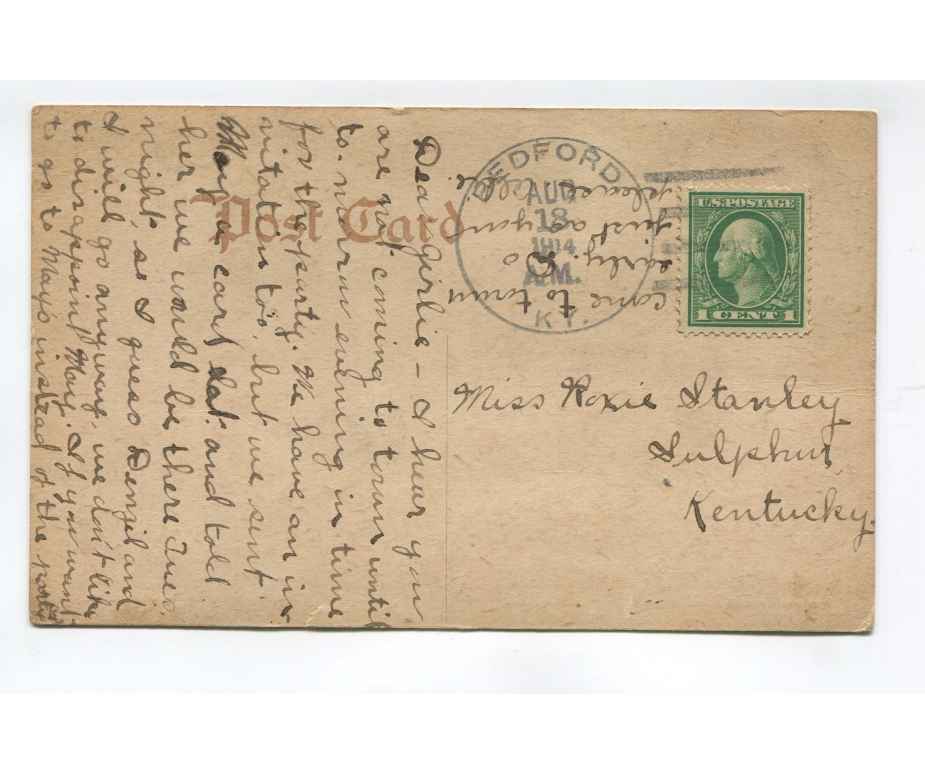 Post Card
BEDFORD
AUG
18
1914
A.M.
KY.
U.S. POSTAGE
1 CENT 1
Miss Roxie Stanley
Sulphur,
Kentucky.
Dear girlie – I hear you
are not coming to town until
to-morrow evening in time
for the party. We have an in-
vitation too, but we sent
May a card Sat. and told
her we would be there Tues.
night, so I guess Denzil and
I will go anyway, we don't like
to disappoint May. If you want
to go to Mays instead of the party
come to town
early. Do
just as you
please